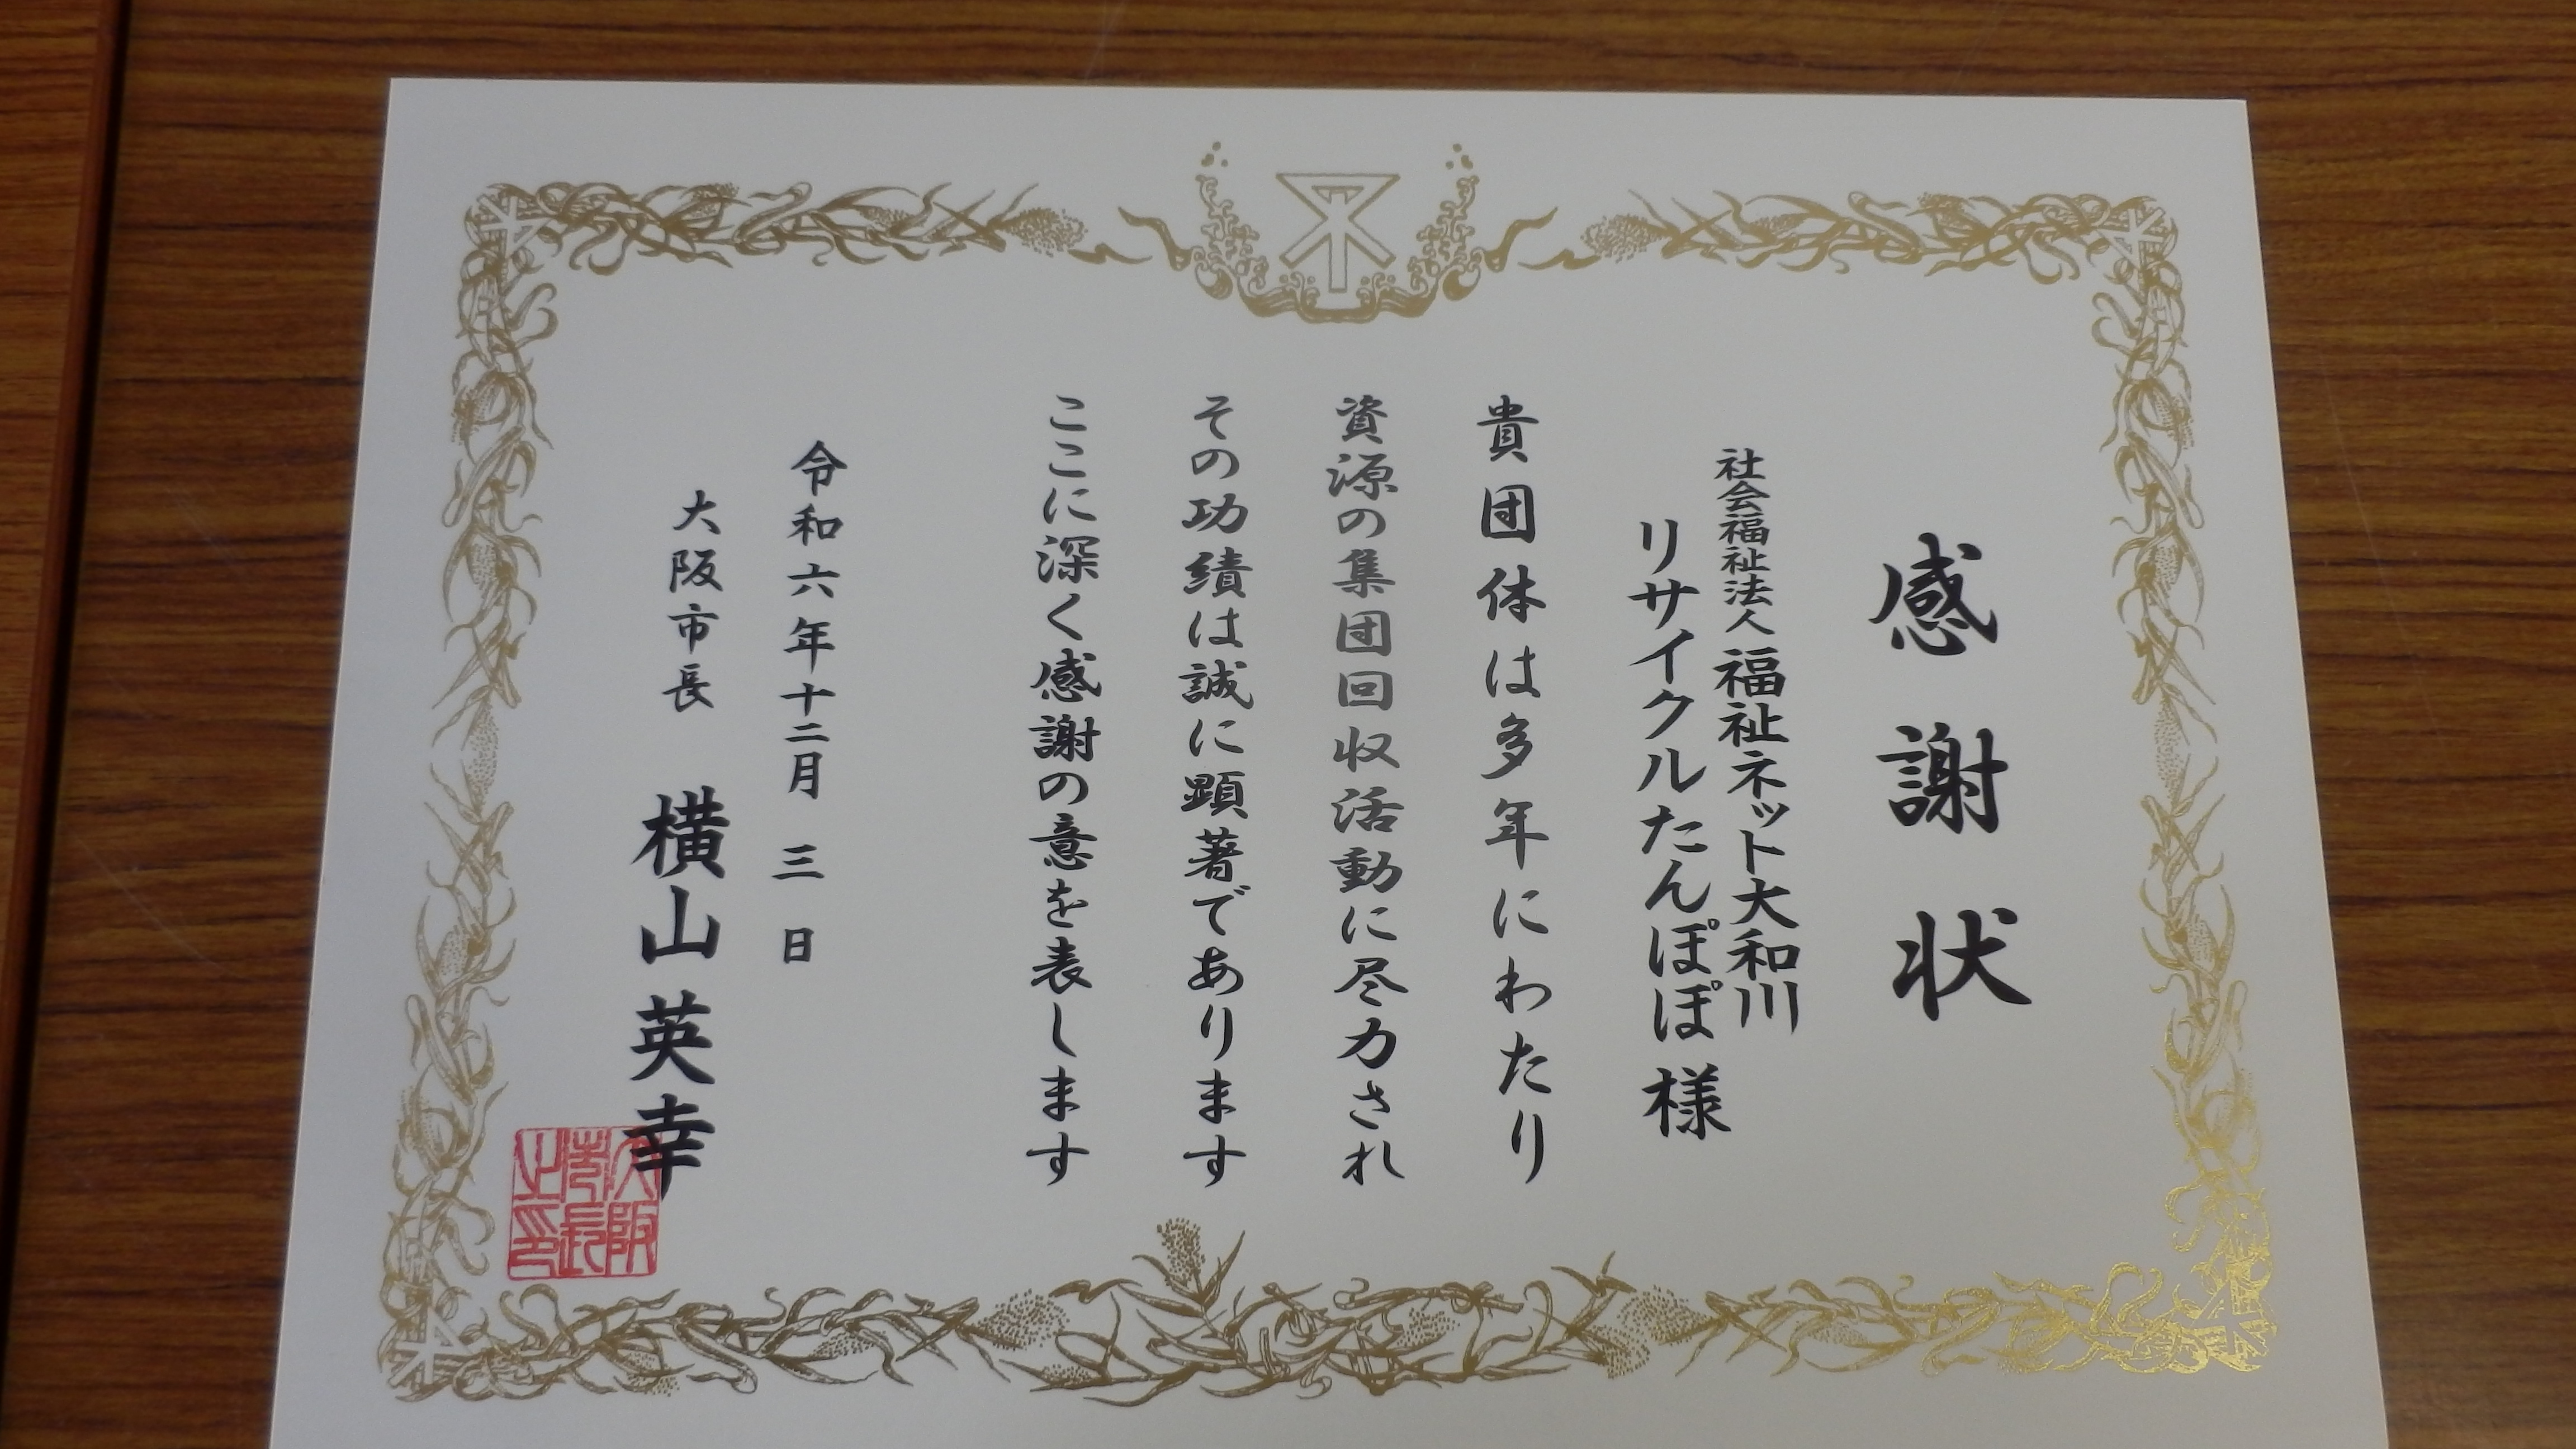 感謝状
社会福祉法人 福祉ネット大和川
リサイクルたんぽぽ 様
貴団体は多年にわたり
資源の集団回収活動に尽力され
その功績は誠に顕著であります
ここに深く感謝の意を表します
令和六年十二月 三 日
大阪市長 横山英幸
大阪市長之印